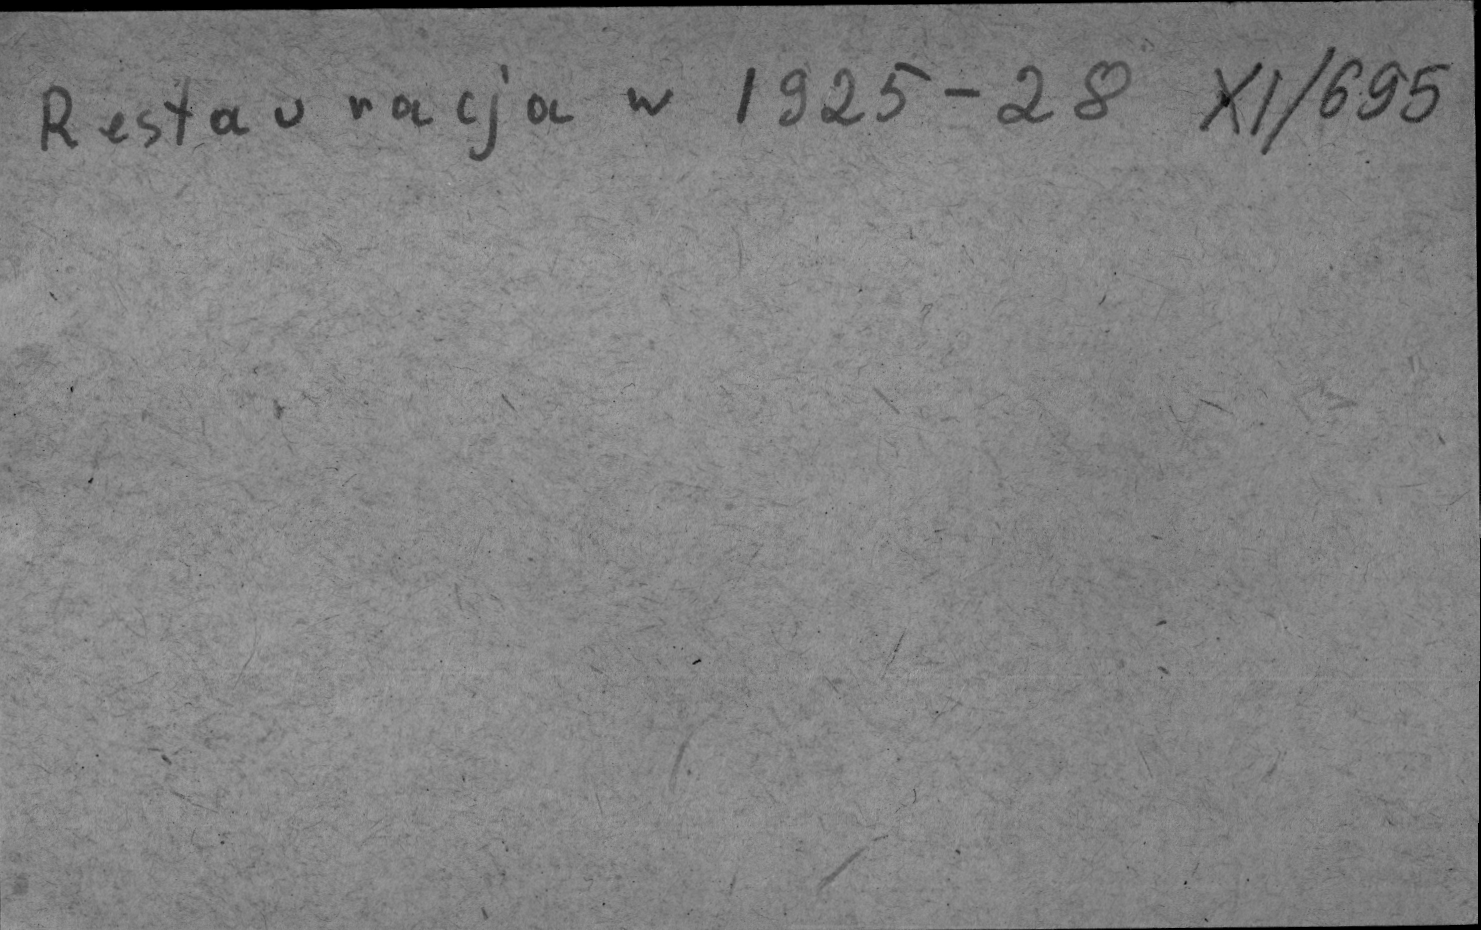 Restauracja w 1925-28 XI/695